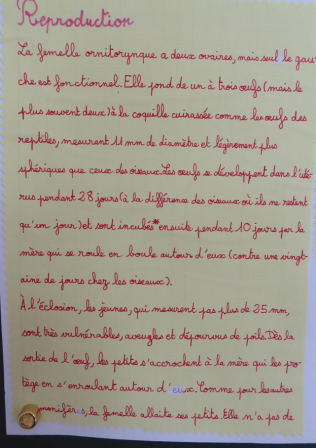 Reproduction
La femelle ornitorynque a deux ovaires, mais seul le gau-
che est fonctionnel. Elle pond de un à trois œufs (mais le
plus souvent deux) à la coquille cuirassée comme les œufs des
reptiles, mesurant 11 mm de diamètre et légèrement plus
sphériques que ceux des oiseaux. Les œufs se développent dans l'uté-
rus pendant 28 jours (à la différence des oiseaux où ils ne restent
qu'un jour) et sont incubés* ensuite pendant 10 jours par la
mère qui se roule en boule autour d'eux (contre une vingt-
aine de jours chez les oiseaux).
À l'éclosion, les jeunes, qui mesurent pas plus de 25 mm,
sont très vulnérables, aveugles et dépourvus de poils. Dès la
sortie de l'œuf, les petits s'accrochent à la mère qui les pro-
tège en s'enroulant autour d'eux. Comme pour les autres
mammifères, la femelle allaite ses petits. Elle n'a pas de